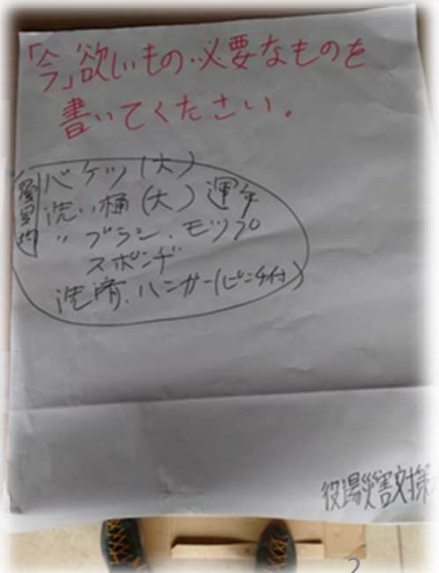 「今」欲しいもの・必要なものを
書いてください。
バケツ(大)
洗い桶(大)
〃 ブラシ、モップ
スポンヂ
洗濯、ハンガー(ピンチ付)
役場災害対策
2